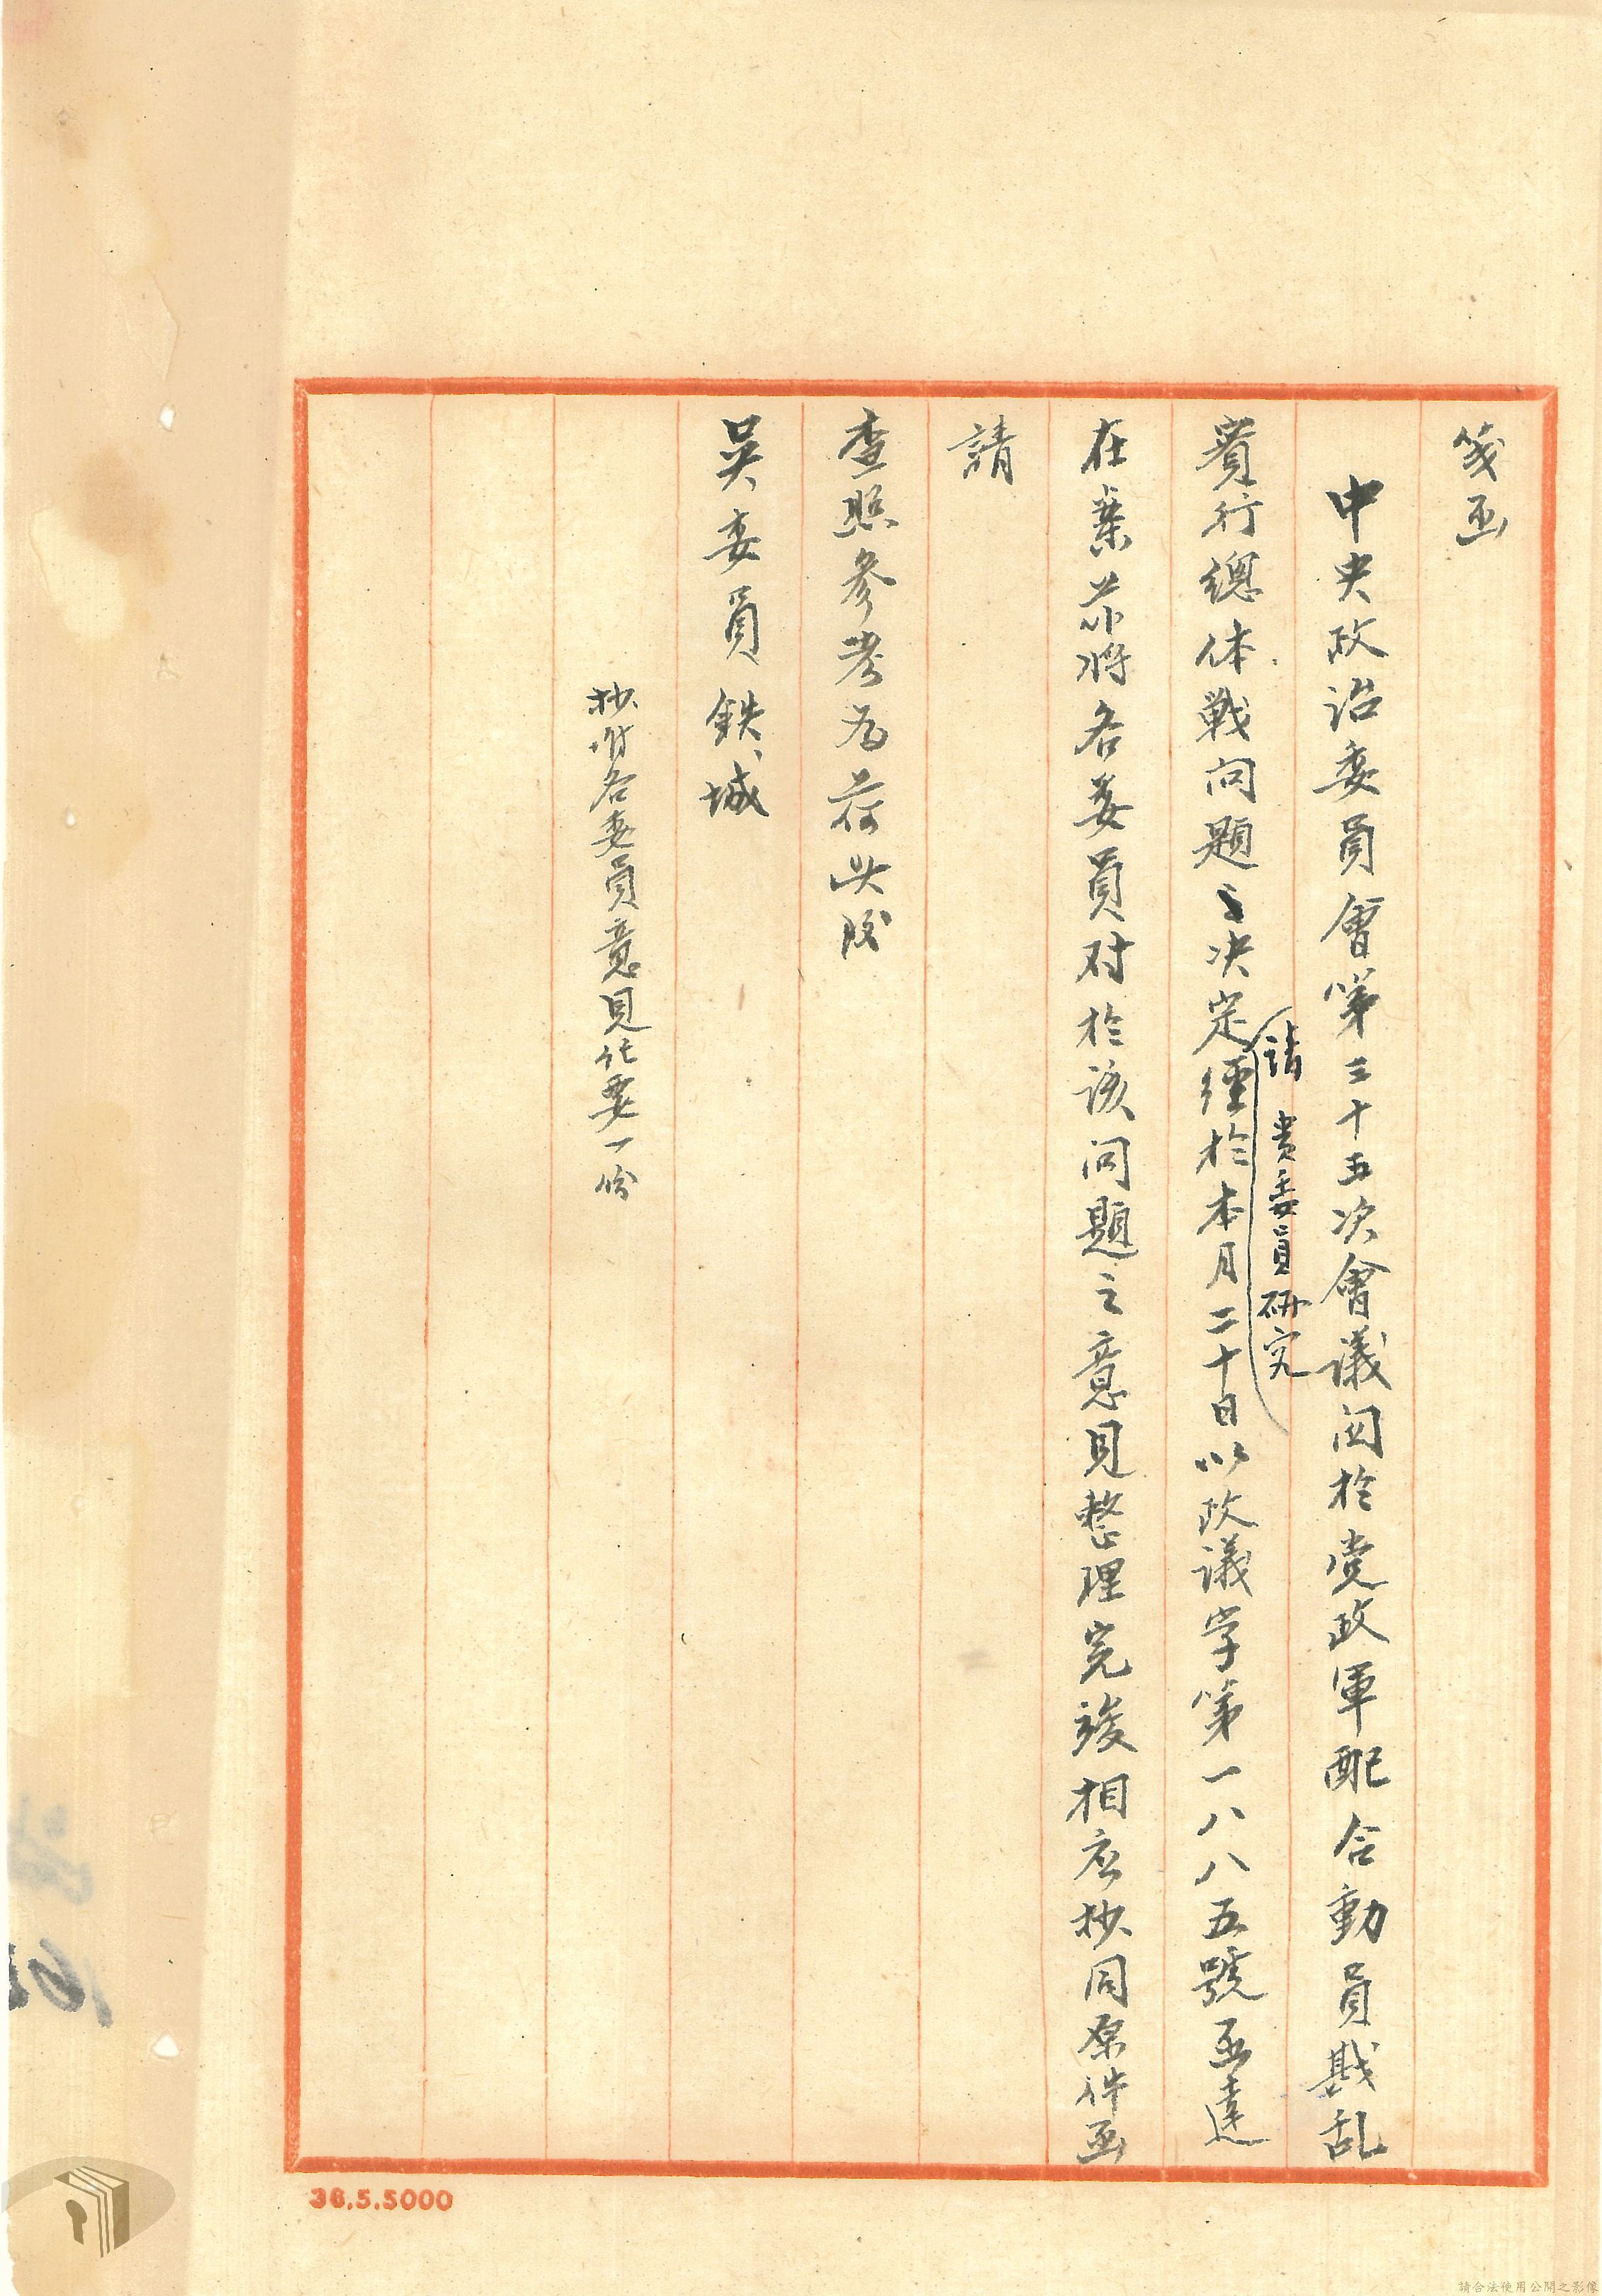 箋函
中央政治委員會第三十五次會議関於党政軍配合動員戡乱
實行總体戰问題之决定經於本月二十日以政議字第一八八五號函達
請 貴委員研究
在案茲將各委員对於该问題之意見整理完竣相应抄同原件函
請
查照參考为荷此致
吳委員鉄城
抄附各委員意見化要一份
36.5.5000
請合法使用公開之影像